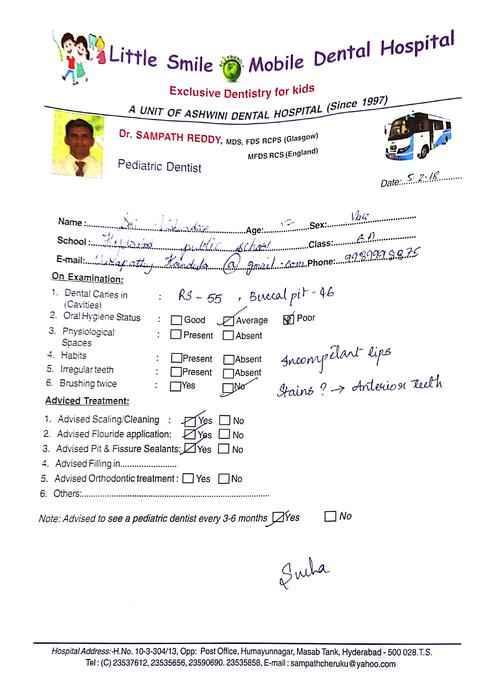 Little Smile Mobile Dental Hospital
Exclusive Dentistry for kids
A UNIT OF ASHWINI DENTAL HOSPITAL (Since 1997)
Dr. SAMPATH REDDY, MDS, FDS RCPS (Glasgow)
MFDS RCS (England)
Pediatric Dentist
Date: 5.2.18
Name: Age: Sex:
School: public school Class:
E-mail: @gmail.com Phone:
On Examination:
1. Dental Caries in (Cavities) : RS - 55, Buccal pit - 46
2. Oral Hygiene Status : Good Average Poor
3. Physiological Spaces : Present Absent
4. Habits : Present Absent Incompetant lips
5. Irregular teeth : Present Absent
6. Brushing twice : Yes No Stains ? → Anterior Teeth
Adviced Treatment:
1. Advised Scaling/Cleaning : Yes No
2. Advised Flouride application: Yes No
3. Advised Pit & Fissure Sealants: Yes No
4. Advised Filling in
5. Advised Orthodontic treatment : Yes No
6. Others:
Note: Advised to see a pediatric dentist every 3-6 months Yes No
Hospital Address:-H.No. 10-3-304/13, Opp: Post Office, Humayunnagar, Masab Tank, Hyderabad - 500 028.T.S.
Tel : (C) 23537612, 23535656, 23590690. 23535858, E-mail : sampathcheruku@yahoo.com